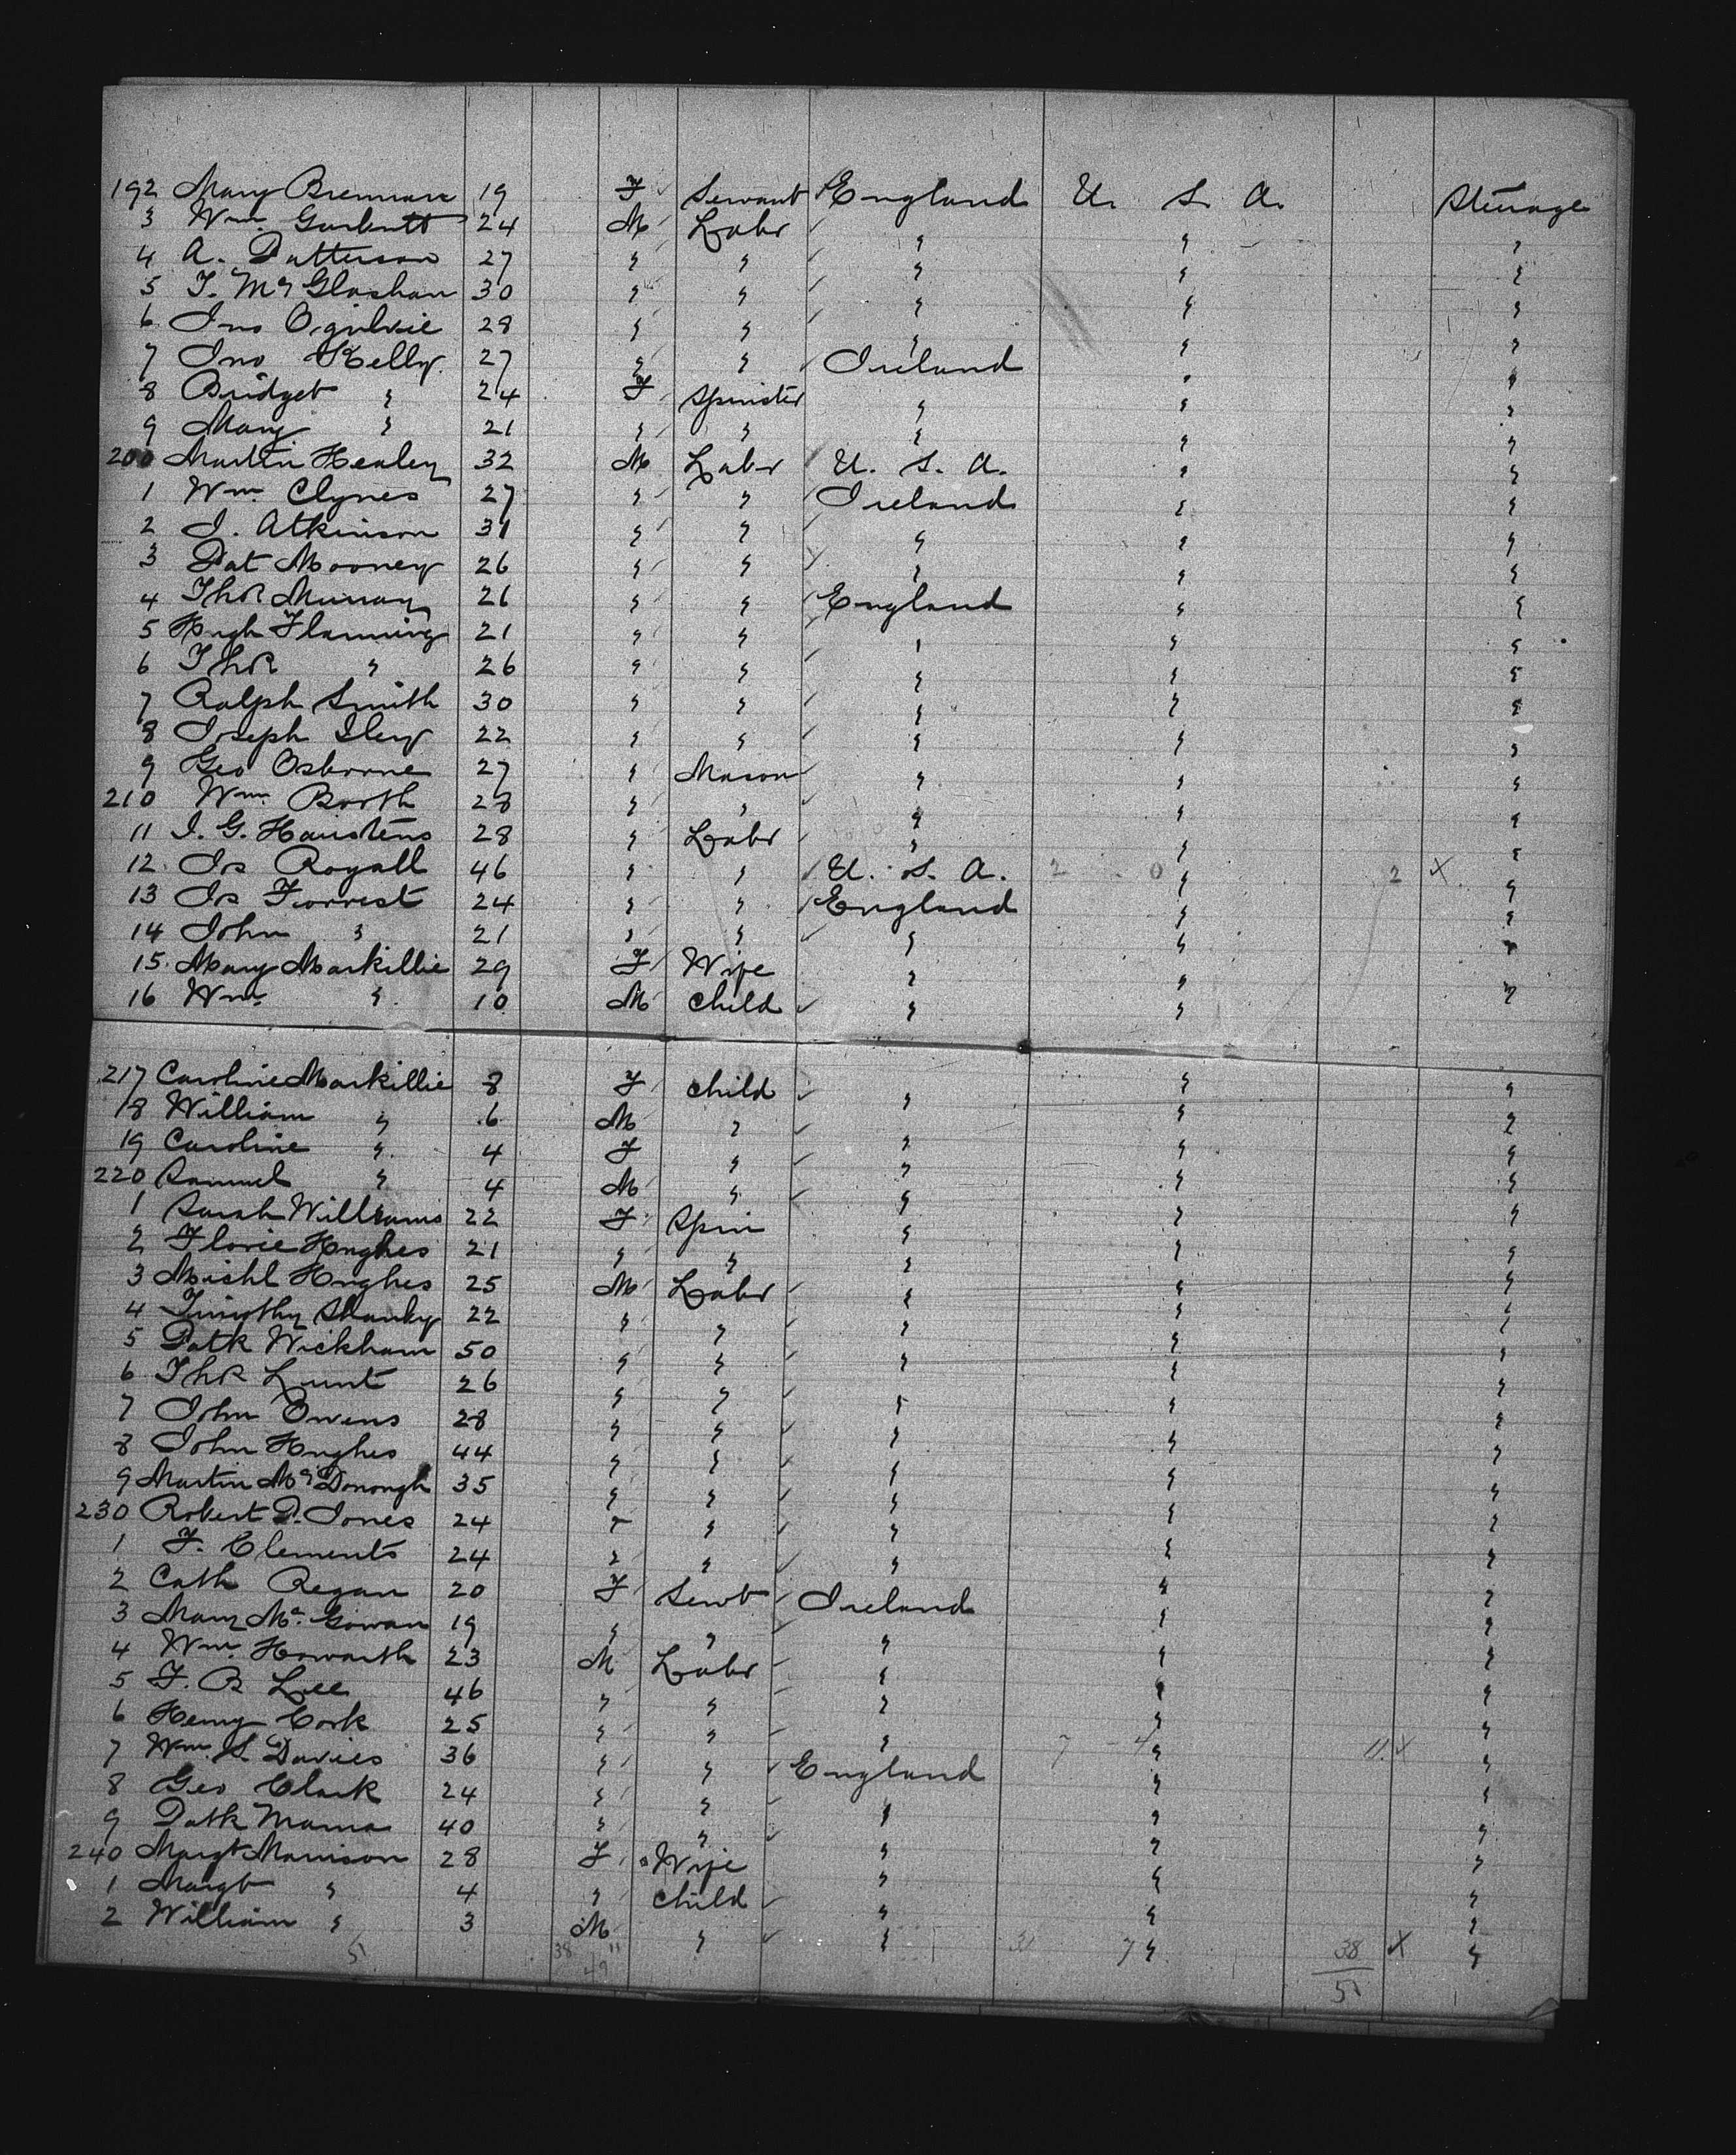 192 Mary Brennan 19 F Servant England U. S. A. Steerage
3 Wm. Garbutt 24 M Labr " " "
4 A. Patterson 27 " " " " "
5 T. Mc Glashan 30 " " " " "
6 Jno Ogilvie 28 " " " " "
7 Jno Kelly 27 " " Ireland " "
8 Bridget " 24 F Spinster " " "
9 Mary " 21 " " " " "
200 Martin Healey 32 M Labr U. S. A. " "
1 Wm. Clynes 27 " " Ireland " "
2 J. Atkinson 31 " " " " "
3 Pat Mooney 26 " " " " "
4 Thos Murray 21 " " England " "
5 Hugh Flanning 21 " " " " "
6 Thos " 26 " " " " "
7 Ralph Smith 30 " " " " "
8 Joseph Iley 22 " " " " "
9 Geo Osborne 27 " Mason " " "
210 Wm. Booth 28 " " " " "
11 J. G. 28 " Labr " " "
12 Js Royall 46 " " U. S. A. 2 0 " 2 X "
13 Js Forrest 24 " " England " "
14 John " 21 " " " " "
15 Mary Markillie 29 F Wife " " "
16 Wm. " 10 M Child " " "
217 Caroline Markillie 8 F Child " " "
18 William " 6 M " " " "
19 Caroline " 4 F " " " "
220 Samuel " 4 M " " " "
1 Sarah Williams 22 F Spin " " "
2 Florie Hughes 21 " " " " "
3 Michl Hughes 25 M Labr " " "
4 Timothy 22 " " " " "
5 Patk Wickham 50 " " " " "
6 Thos Lunt 26 " " " " "
7 John Owens 28 " " " " "
8 John Hughes 44 " " " " "
9 Martin Mc Donough 35 " " " " "
230 Robert P. Jones 24 " " " " "
1 F. Clements 24 " " " " "
2 Cath Regan 20 F Servt Ireland " "
3 Mary Mc Gowan 19 " " " " "
4 Wm. Howarth 23 M Labr " " "
5 F. B Lee 46 " " " " "
6 Henry Cork 25 " " " " "
7 Wm. S. Davies 36 " " England 7 4 " 11 X "
8 Geo Clark 24 " " " " "
9 Patk 40 " " " " "
240 Margt Morrison 28 F Wife " " "
1 Margt " 4 " Child " " "
2 William " 3 M " " 31 7 " 38 X "
51 38 11 49 51